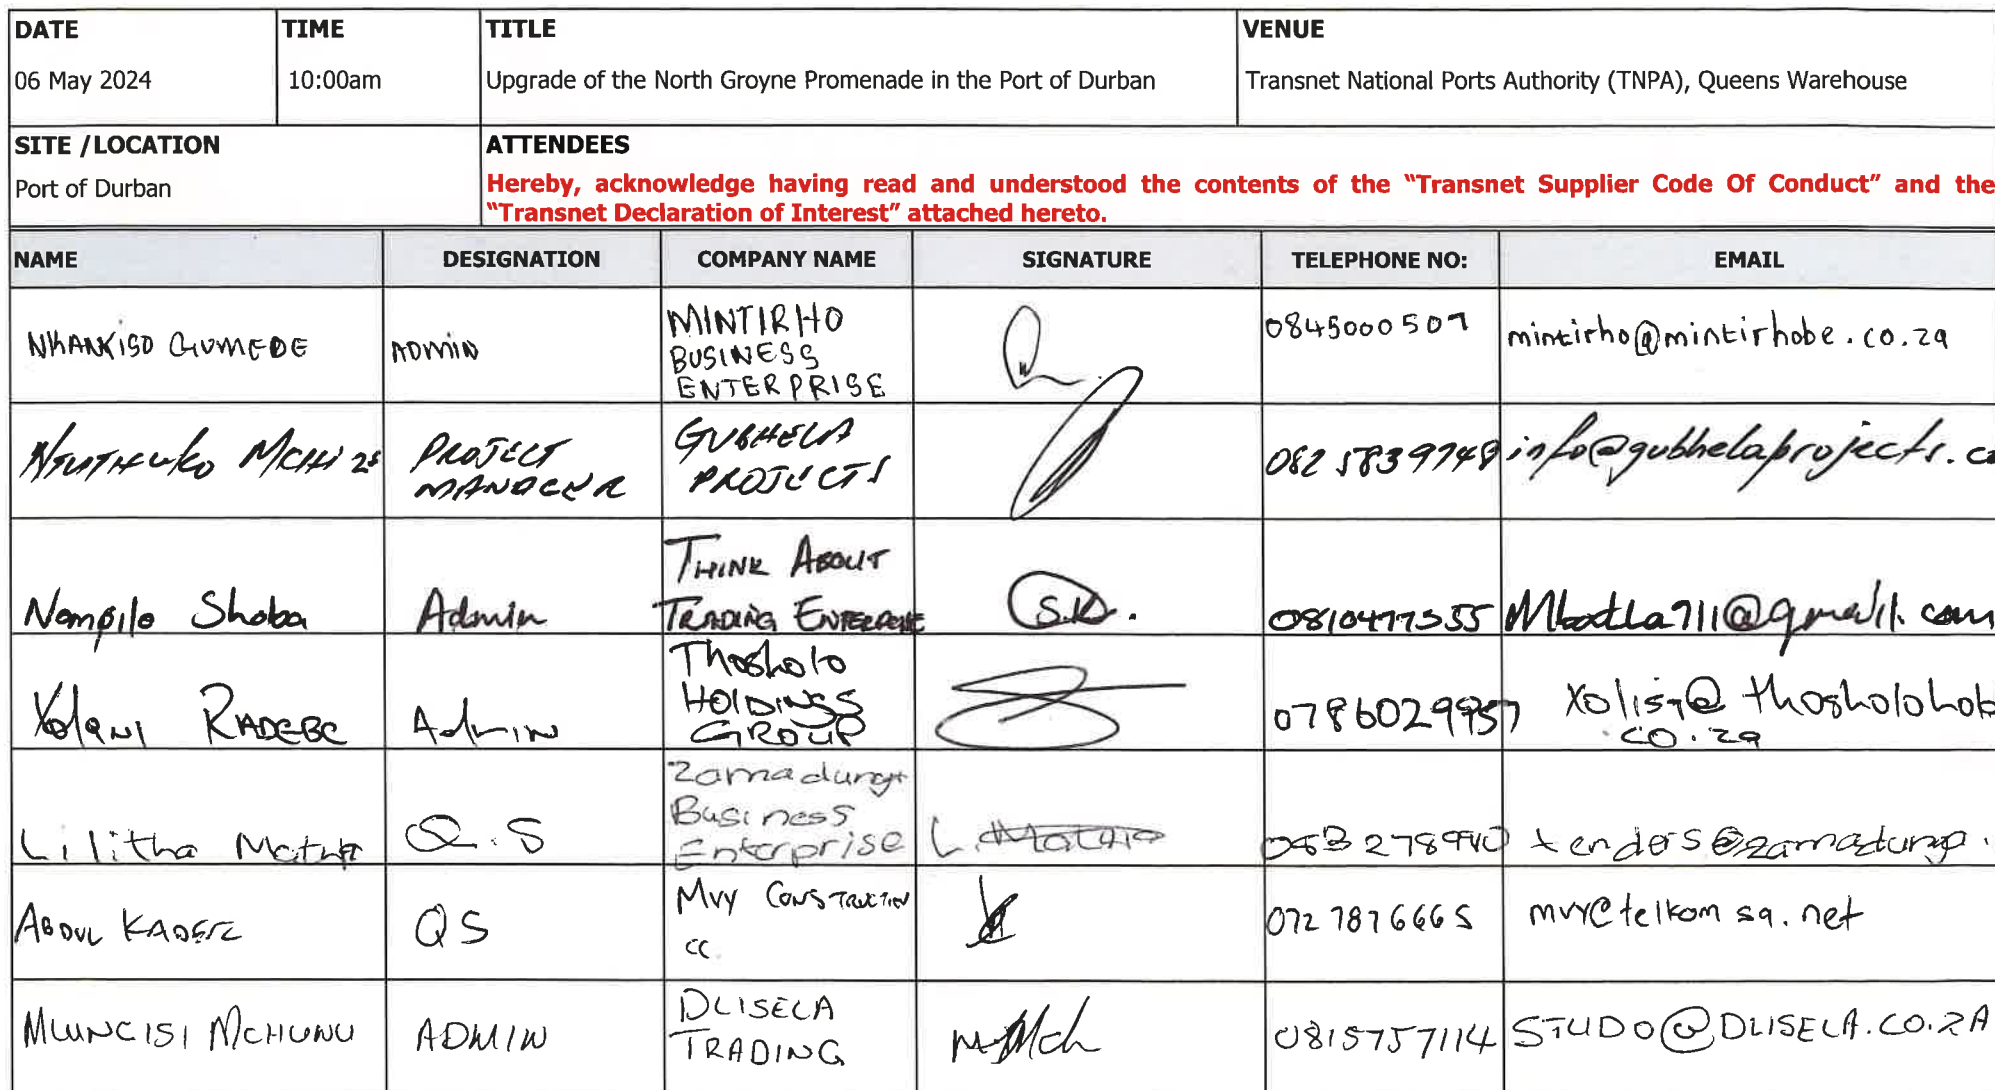 DATE TIME TITLE VENUE
06 May 2024 10:00am Upgrade of the North Groyne Promenade in the Port of Durban Transnet National Ports Authority (TNPA), Queens Warehouse
SITE / LOCATION ATTENDEES
Port of Durban Hereby, acknowledge having read and understood the contents of the “Transnet Supplier Code Of Conduct” and the
“Transnet Declaration of Interest” attached hereto.
NAME DESIGNATION COMPANY NAME SIGNATURE TELEPHONE NO: EMAIL
NKANKISO GUMEDE ADMIN MINTIRHO
BUSINESS
ENTERPRISE
0845000507 mintirho@mintirhobe.co.za
MCHIZE PROJECT
MANAGER
GUBHELA
PROJECTS
0825839748 info@gubhelaprojects.co
Nompilo Shoba Admin THINK ABOUT
TRADING ENTERPRISE
S.N. 0810477355 @gmail.com
Xolani RADEBE Admin Thosholo
HOLDINGS
GROUP
0786029957 thosholohol
co.za
Lilitha Q.S Zamadunga
Business
Enterprise
tenders@zamadunga.
ABDUL KADER QS MVY CONSTRUCTION
CC
0727876665 mvy@telkomsa.net
MLUNGISI MCHUNU ADMIN DLISELA
TRADING
0815757114 STUDO@DLISELA.CO.ZA